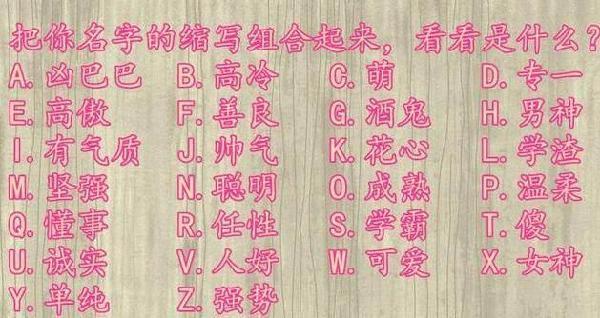 把你名字的缩写组合起来，看看是什么？
A.凶巴巴 B.高冷 C.萌 D.专一
E.高傲 F.善良 G.酒鬼 H.男神
I.有气质 J.帅气 K.花心 L.学渣
M.坚强 N.聪明 O.成熟 P.温柔
Q.懂事 R.任性 S.学霸 T.傻
U.诚实 V.人好 W.可爱 X.女神
Y.单纯 Z.强势